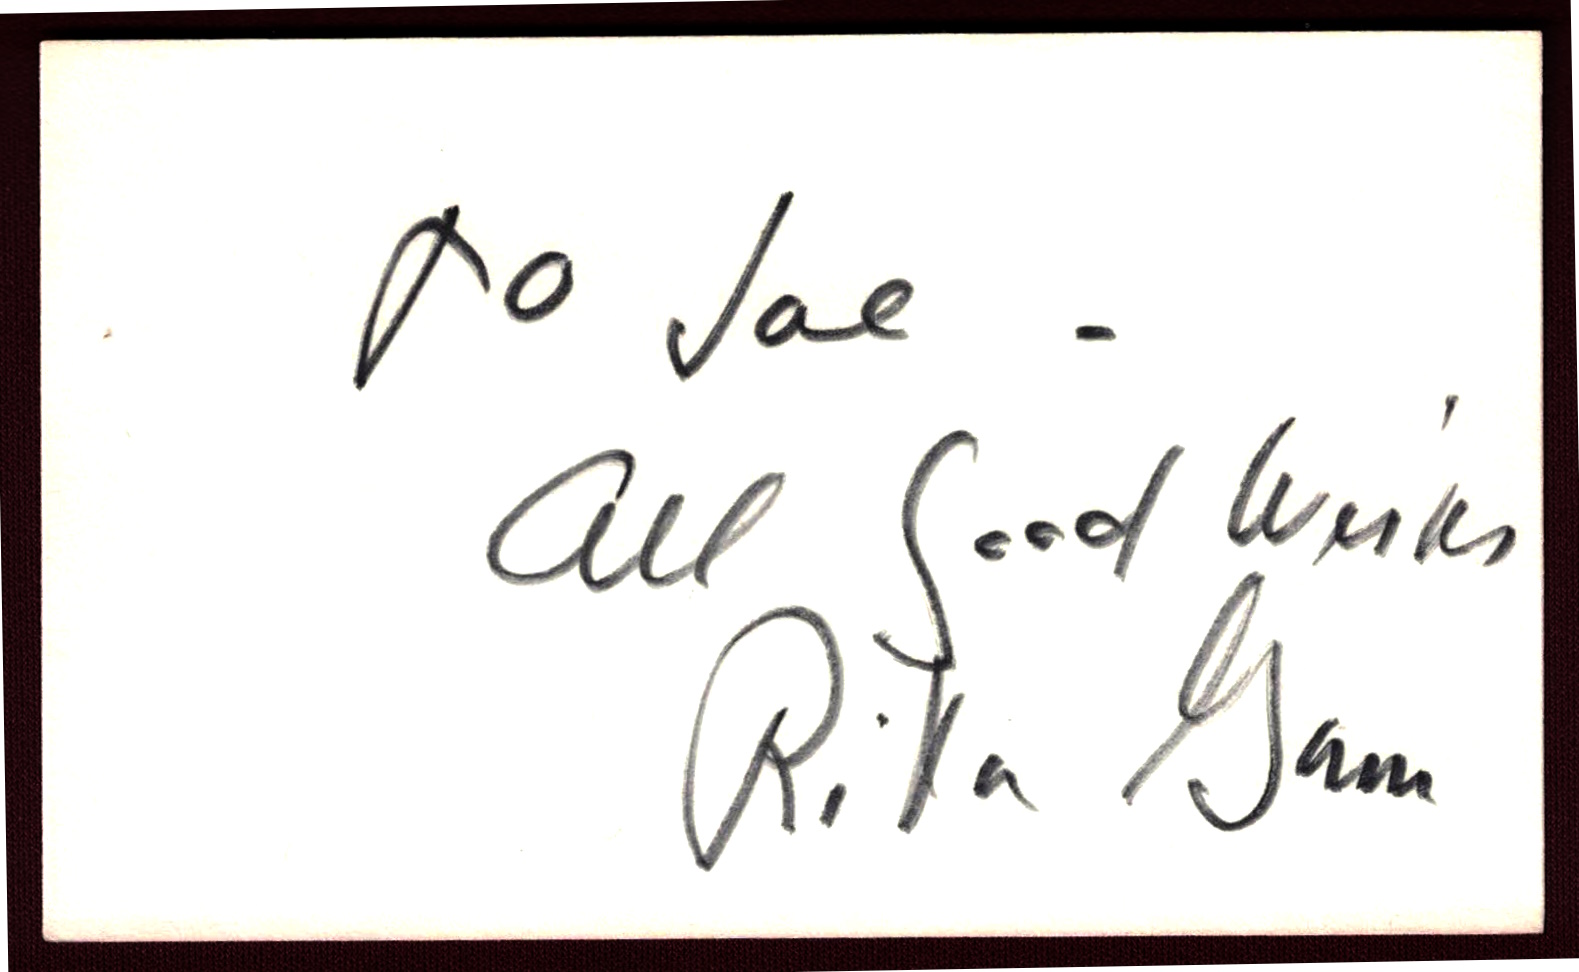 To Joe -
All Good Wishes
Rita Gam